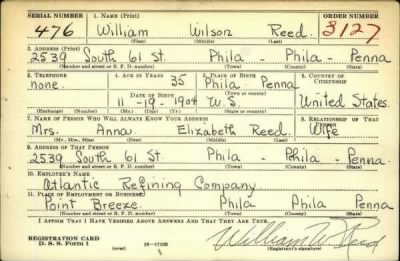 SERIAL NUMBER 1. NAME (Print) ORDER NUMBER
476 William Wilson Reed. 3127
(First) (Middle) (Last)
2. ADDRESS (Print)
2539 South 61 St. Phila - Phila - Penna
(Number and street or R. F. D. number) (Town) (County) (State)
3. TELEPHONE 4. AGE IN YEARS 35 5. PLACE OF BIRTH 6. COUNTRY OF CITIZENSHIP
none. Phila Penna
DATE OF BIRTH (Town or county)
11 - 19 - 1904 U.S United States.
(Exchange) (Number) (Mo.) (Day) (Yr.) (State or country)
7. NAME OF PERSON WHO WILL ALWAYS KNOW YOUR ADDRESS 8. RELATIONSHIP OF THAT PERSON
Mrs. Anna. Elizabeth Reed. Wife
(Mr., Mrs., Miss) (First) (Middle) (Last)
9. ADDRESS OF THAT PERSON
2539 South 61 St Phila - Phila - Penna.
(Number and street or R. F. D. number) (Town) (County) (State)
10. EMPLOYER'S NAME
Atlantic Refining Company
11. PLACE OF EMPLOYMENT OR BUSINESS
Point Breeze. Phila Phila Penna
(Number and street or R. F. D. number) (Town) (County) (State)
I AFFIRM THAT I HAVE VERIFIED ABOVE ANSWERS AND THAT THEY ARE TRUE.
REGISTRATION CARD
D. S. S. Form 1 16-17105 William W. Reed
(Registrant's signature)